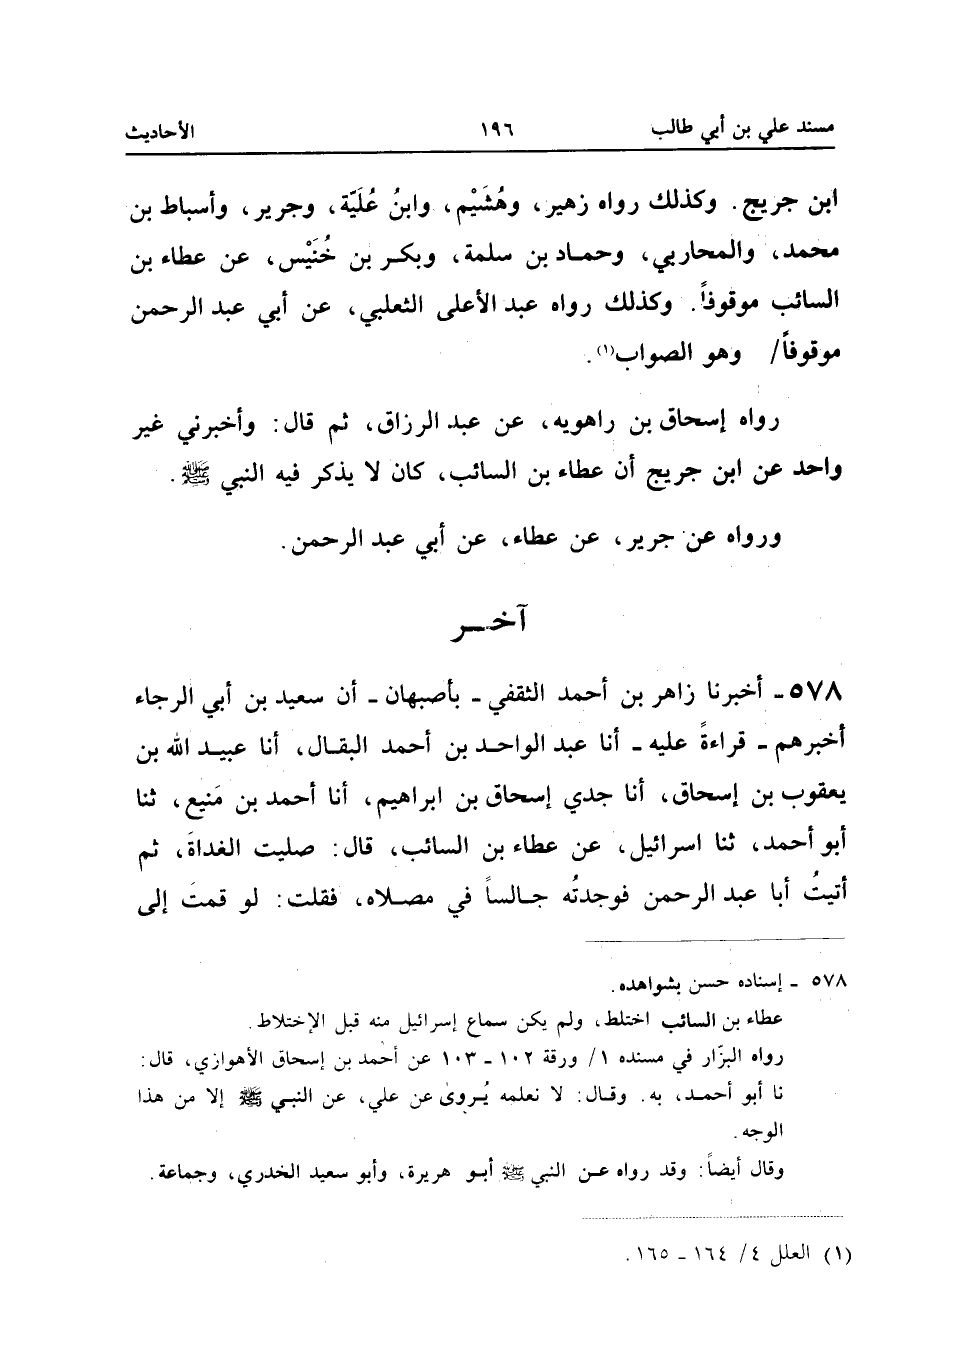 مسند علي بن أبي طالب ١٩٦ الأحاديث
ابن جريج. وكذلك رواه زهير، وهُشَيْم، وابنُ عُلَيّة، وجرير، وأسباط بن
محمد، والمحاربي، وحمـاد بن سلمة، وبكـر بن خُنَيْس، عن عطاء بن
السائب موقوفاً. وكذلك رواه عبد الأعلى الثعلبي، عن أبي عبد الرحمن
موقوفاً/ وهو الصواب(١).
رواه إسحاق بن راهويه، عن عبد الرزاق، ثم قال: وأخبرني غير
واحد عن ابن جريج أن عطاء بن السائب، كان لا يذكر فيه النبي ﷺ.
ورواه عن جرير، عن عطاء، عن أبي عبد الرحمن.
آخـــر
٥٧٨ـ أخبرنا زاهر بن أحمد الثقفي ـ بأصبهان ـ أن سعيد بن أبي الرجاء
أخبرهم ـ قراءةً عليه ـ أنا عبد الواحـد بن أحمد البقـال، أنا عبيـد الله بن
يعقوب بن إسحاق، أنا جدي إسحاق بن ابراهيم، أنا أحمد بن مَنيع، ثنا
أبو أحمد، ثنا اسرائيل، عن عطاء بن السائب، قال: صليت الغداةَ، ثم
أتيتُ أبا عبد الرحمن فوجدتُه جـالساً في مصـلاه، فقلت: لو قمتَ إلى
٥٧٨ ـ إسناده حسن بشواهده.
عطاء بن السائب اختلط، ولم يكن سماع إسرائيل منه قبل الإختلاط.
رواه البزّار في مسنده ١/ ورقة ١٠٢ ـ ١٠٣ عن أحمد بن إسحاق الأهوازي، قال:
نا أبو أحمـد، به. وقـال: لا نعلمه يُروىٰ عن علي، عن النبـي ﷺ إلا من هذا
الوجه.
وقال أيضاً: وقد رواه عـن النبي ﷺ أبـو هريرة، وأبو سعيد الخدري، وجماعة.
(١) العلل ٤/ ١٦٤ ـ ١٦٥.